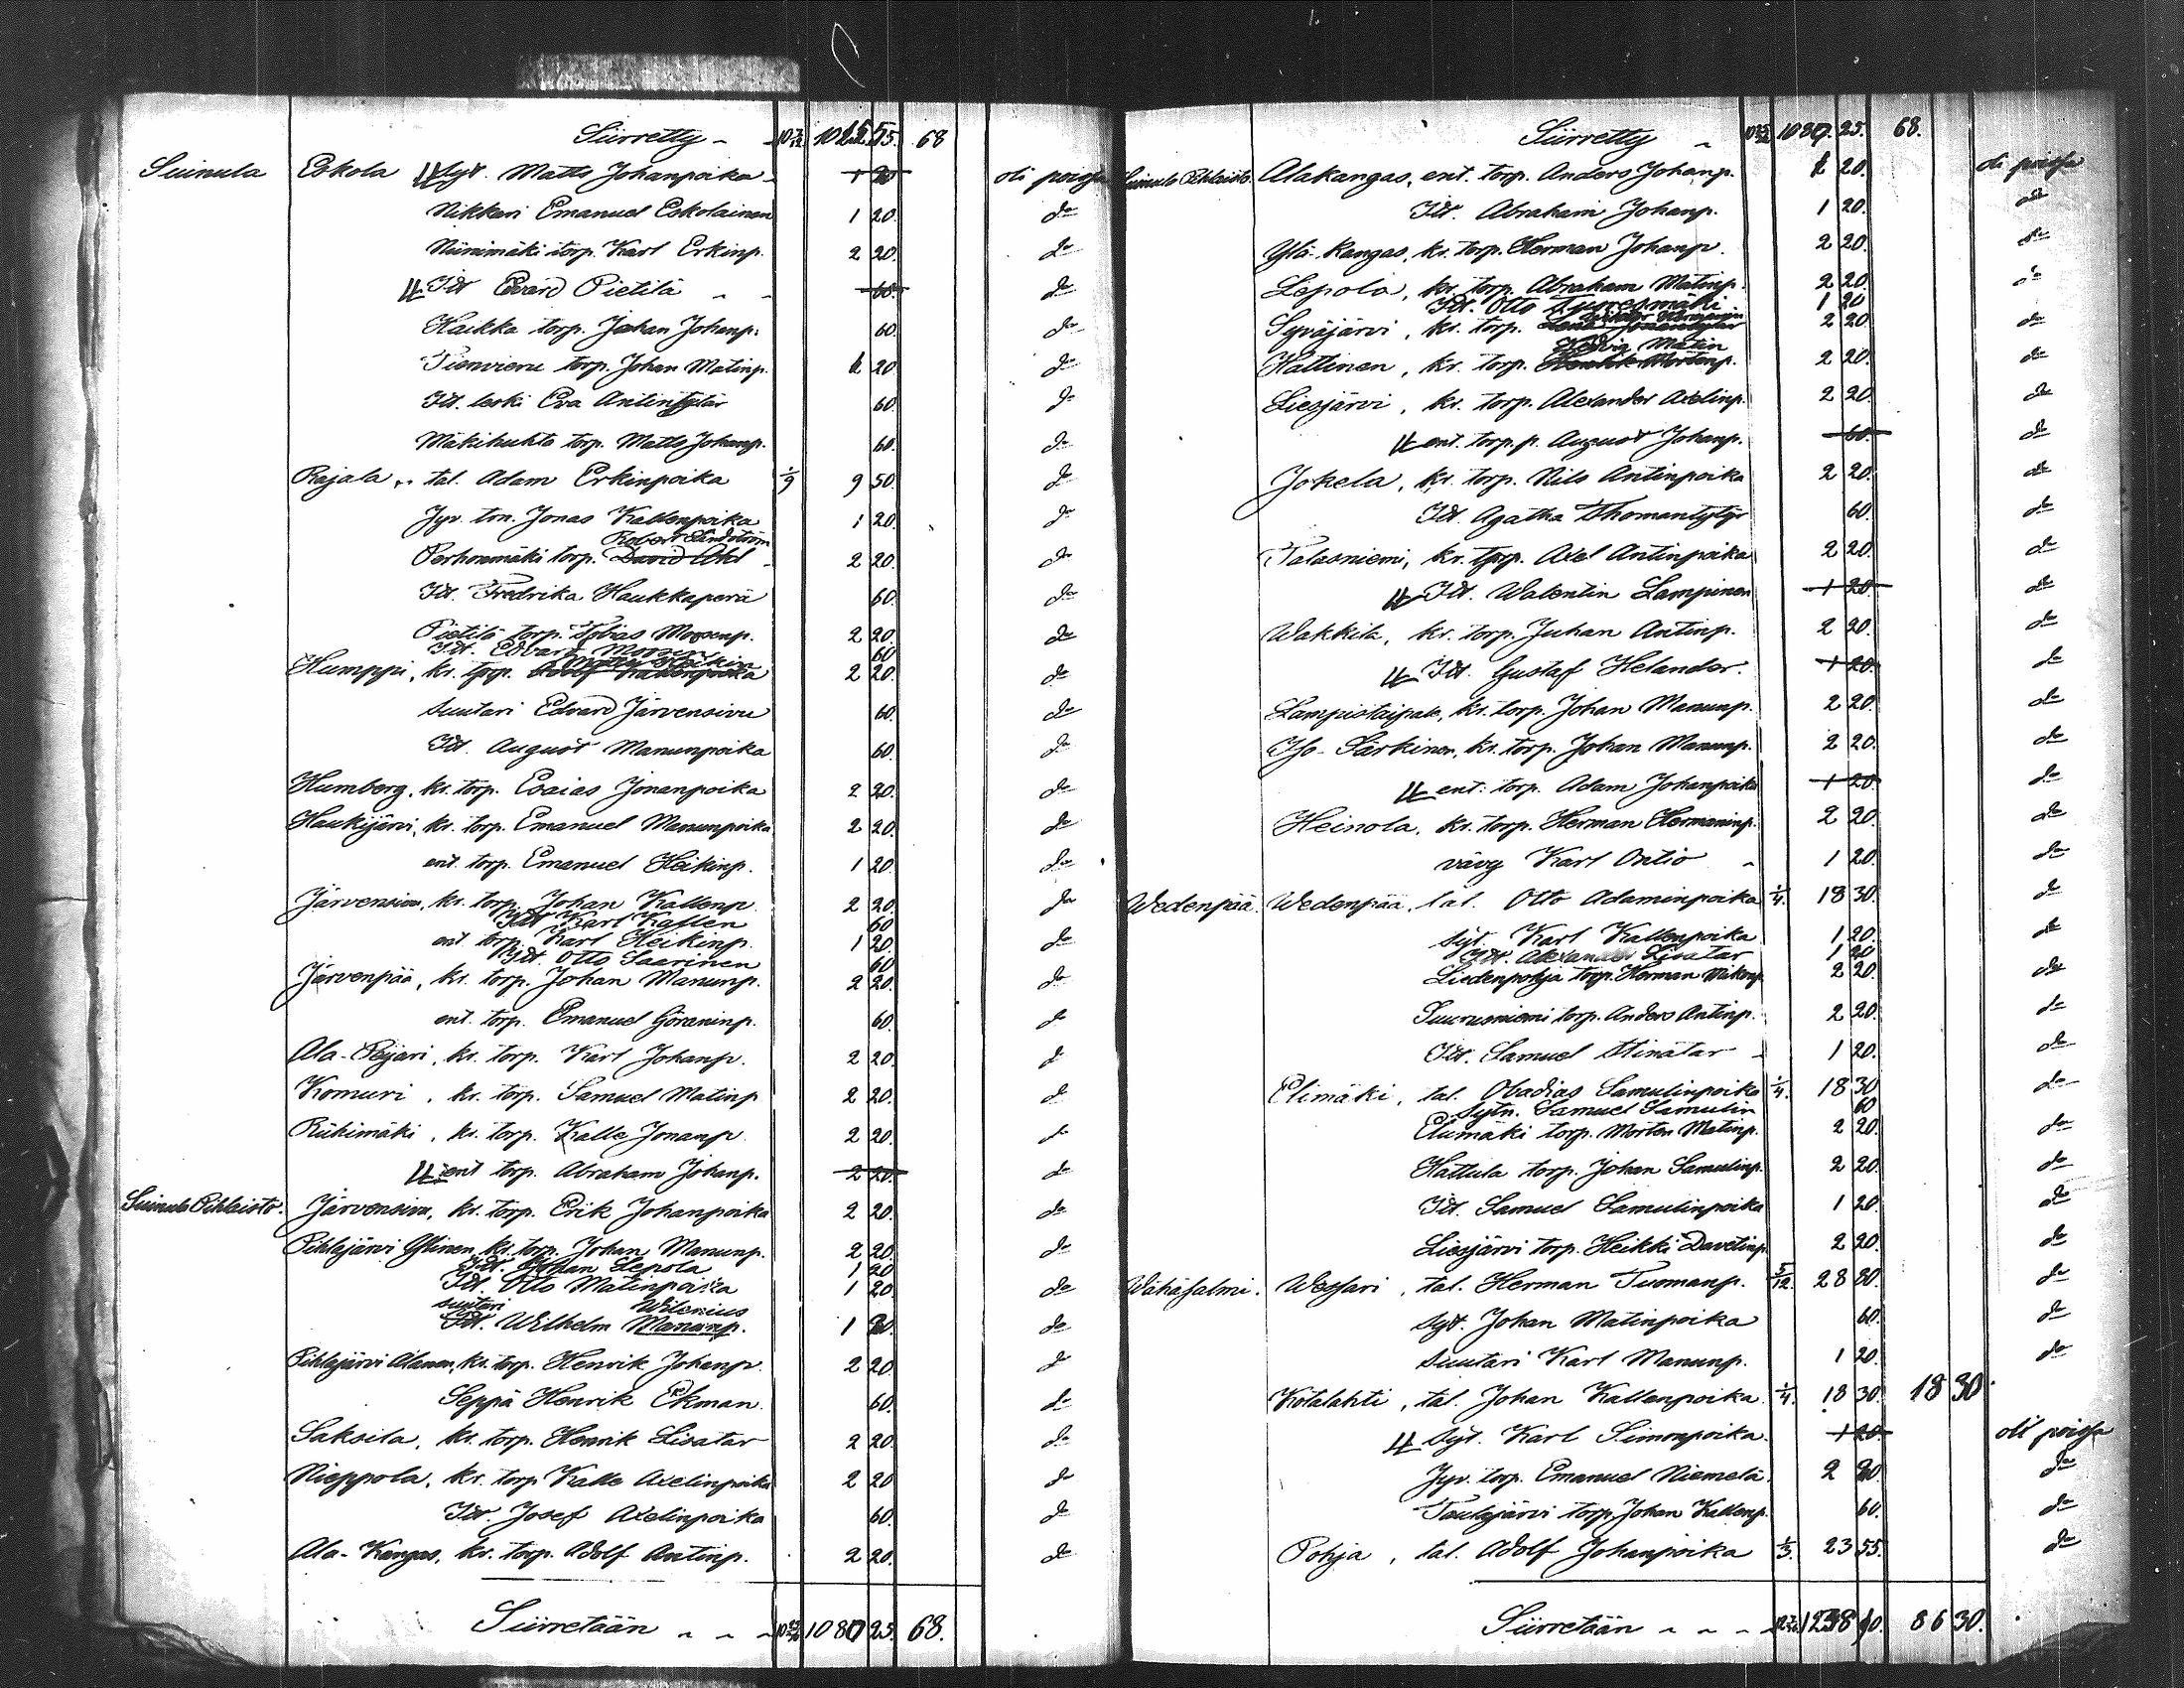 Siirretty 10 7/12 1025 55. 68
Suinula Eskola Syt. Matts Johanpoika 1 20 oli poissa
Nikkari Emanuel Eskolainen 1 20. do
Niinimäki torp. Karl Erkinp. 2 20. do
Idt Edvard Pietilä 60. do
Haikka torp. Johan Johanp. 60. do
Pienvieru torp. Johan Matinp. 2 20. do
Idt. leski Eva Antintytär 60. do
Mäkihuhta torp. Matts Johanp. 60. do
Rajala, tal. Adam Erkinpoika 1/9 9 50. do
Jyv. torp. Jonas Kallenpoika 1 20. do
Robert Sandström
Perhonmäki torp. David Ahl 2 20. do
Idt. Fredrika Haukkaperä 60. do
Pietilä torp. Tobias Mosenp. 2 20. do
Idt. Edvard Mosen 60
Heikin
Humppi, kr. torp. Adolf Kallenpoika 2 20. do
Suutari Edvard Järvensivu 60. do
Idt. August Manunpoika 60. do
Humberg, kr. torp. Esaias Jonanpoika 2 20. do
Haukijärvi, kr. torp. Emanuel Manunpoika 2 20. do
ent. torp. Emanuel Heikinp. 1 20. do
Järvensivu, kr. torp. Johan Kallenp. 2 20. do
Idt Karl Kallen 60
ent. torp. Karl Heikinp. 1 20. do
Idt. Otto Saarinen 60
Järvenpää, kr. torp. Johan Manunp. 2 20. do
ent. torp. Emanuel Göraninp. 60. do
Ala-Pajari, kr. torp. Karl Johanp. 2 20. do
Komuri, kr. torp. Samuel Matinp 2 20. do
Riihimäki, kr. torp. Kalle Jonanp 2 20. do
ent torp. Abraham Johanp. 2 20. do
Suinula Pihlaisto. Järvensivu, kr. torp. Erik Johanpoika 2 20. do
Pihlajärvi Ylinen, kr. torp. Johan Manunp. 2 20. do
Idt. Johan Lepola 1 20
Idt. Otto Matinpoika 1 20 do
suutari Wilenius
Idt. Wilhelm Manunp. 1 20. do
Pihlajärvi Alanen, kr. torp. Henrik Johanp. 2 20. do
Seppä Henrik Ekman. 60. do
Saksila, kr. torp. Henrik Lisatar 2 20. do
Nieppola, kr. torp Kalle Axelinpoika 2 20 do
Idt. Josef Axelinpoika 60. do
Ala-Kangas, kr. torp. Adolf Antinp. 2 20. do
Siirretään 1080 25. 68.
Siirretty 1080 25. 68.
Suinula Pihlaisto. Alakangas, ent. torp. Anders Johanp. 1 20. oli poissa
Idt. Abraham Johanp. 1 20. do
Ylä-Kangas, kr. torp. Herman Johanp. 2 20. do
Lepola, kr. torp. Abraham Matinp. 2 20. do
Idt. Otto Tyyresmäki 1 20
Syväjärvi, kr. torp. 2 20. do
Hedvig Matin
Hattinen, kr. torp. 2 20. do
Liesjärvi, kr. torp. Alexander Axelinp. 2 20. do
ent. torp. p. August Johanp. 60. do
Jokela, kr. torp. Nils Antinpoika 2 20. do
Idt. Agatha Thomantytyr 60. do
Talasniemi, kr. torp. Axel Antinpoika 2 20. do
Idt. Walentin Lampinen 1 20. do
Wakkila, kr. torp. Juhan Antinp. 2 20. do
Idt. Gustaf Helander. 1 20. do
Lampistaipale, kr. torp. Johan Manunp. 2 20. do
Iso-Särkinen, kr. torp. Johan Manunp. 2 20. do
ent. torp. Adam Johanpoika 1 20. do
Heinola, kr. torp. Herman Hermaninp. 2 20. do
vävy Karl Ontio 1 20. do
Wedenpää. Wedenpää, tal. Otto Adaminpoika 1/4. 18 30. do
Syt. Karl Kallenpoika 1 20. do
Idt. Alexander Lisatar 1 20
Liedenpohja torp. Herman Mikenp 2 20. do
Suurusniemi torp. Anders Antinp. 2 20. do
Idt. Samuel Stinatar 1 20. do
Elimäki, tal. Obadias Samulinpoika 1/4. 18 30 do
Sytn. Samuel Samulin 60
Elumäki torp. Morten Matinp. 2 20. do
Hattula torp. Johan Samulinp. 2 20. do
Idt. Samuel Samulinpoika 1 20. do
Liesjärvi torp. Heikki Davetinp 2 20. do
Wähäsalmi. Wessari, tal. Herman Tuomanp. 5/12. 28 80. do
Syt. Johan Matinpoika 60. do
Suutari Karl Manunp. 1 20. do
Kotalahti, tal. Johan Kallenpoika 1/4. 18 30. 18 30.
Syt. Karl Simonpoika. 1 20. oli poissa
Jyv. torp. Emanuel Niemelä. 2 20. do
Taulajärvi torp. Johan Kallenp. 60. do
Pohja, tal. Adolf Johanpoika 1/3. 23 55. do
Siirretään 1238 10. 86 30.